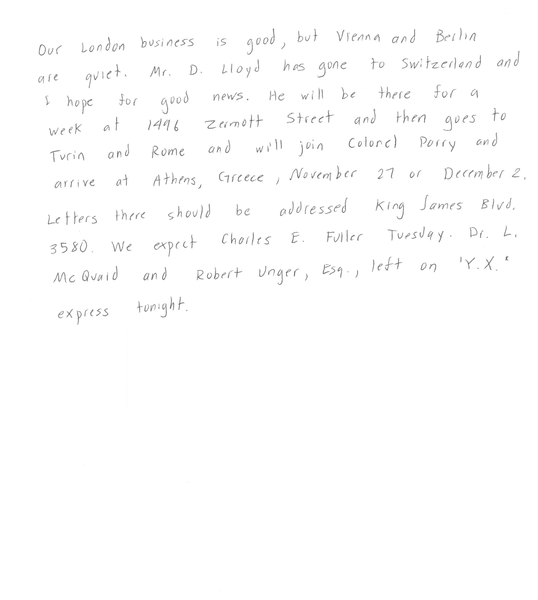 Our London business is good, but Vienna and Berlin
are quiet. Mr. D. Lloyd has gone to Switzerland and
I hope for good news. He will be there for a
week at 1496 Zermott Street and then goes to
Turin and Rome and will join Colonel Parry and
arrive at Athens, Greece, November 27 or December 2.
Letters there should be addressed King James Blvd.
3580. We expect Charles E. Fuller Tuesday. Dr. L.
McQuaid and Robert Unger, Esq., left on 'Y.X."
express tonight.